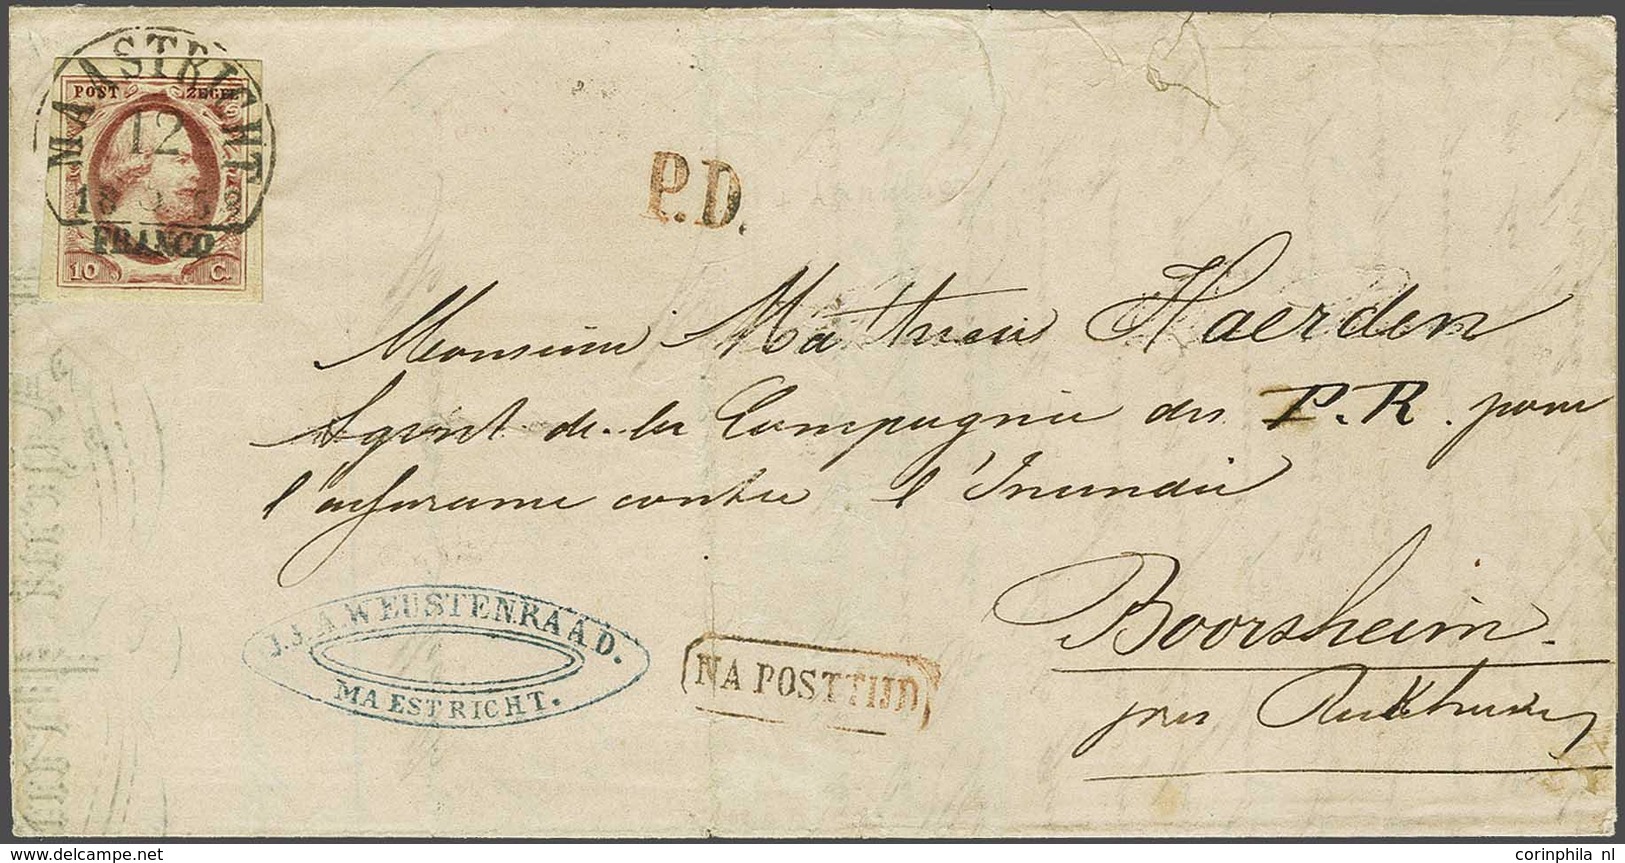 MAASTRICHT
POST ZEGEL
12
FRANCO
10 C.
P.D.
Monsieur Mathieu Haerden
Agent de la Compagnie des P.R. pour
l'assurance contre l'Incendie
J.J.A WEUSTENRAAD.
MAESTRICHT.
NA POSTTIJD
Boorsheim
près
delcampe.net
corinphila nl